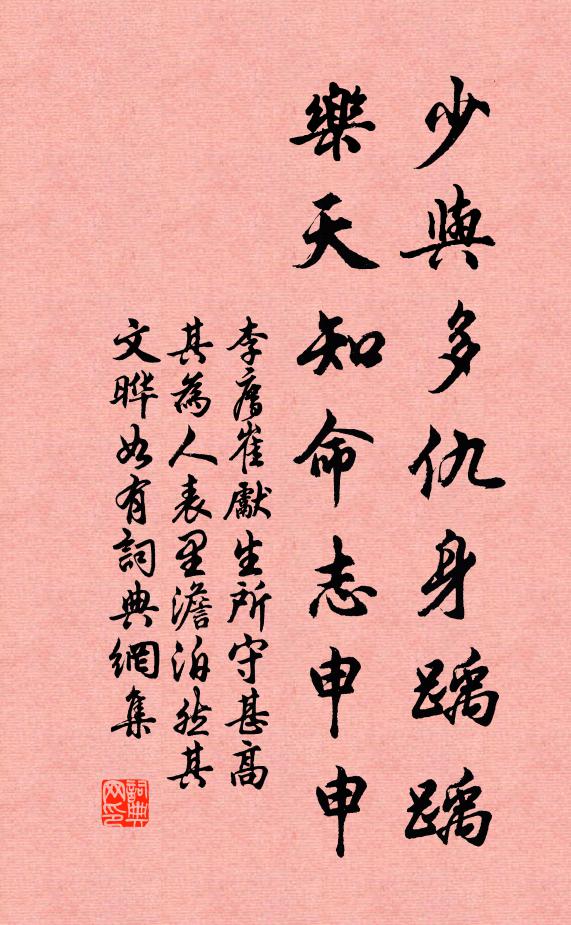 少與多仇身踽踽
樂天知命志申申
李廌崔獻生所守甚高
其為人表里澹泊然其
文曄如有詞典網集
詞典網印